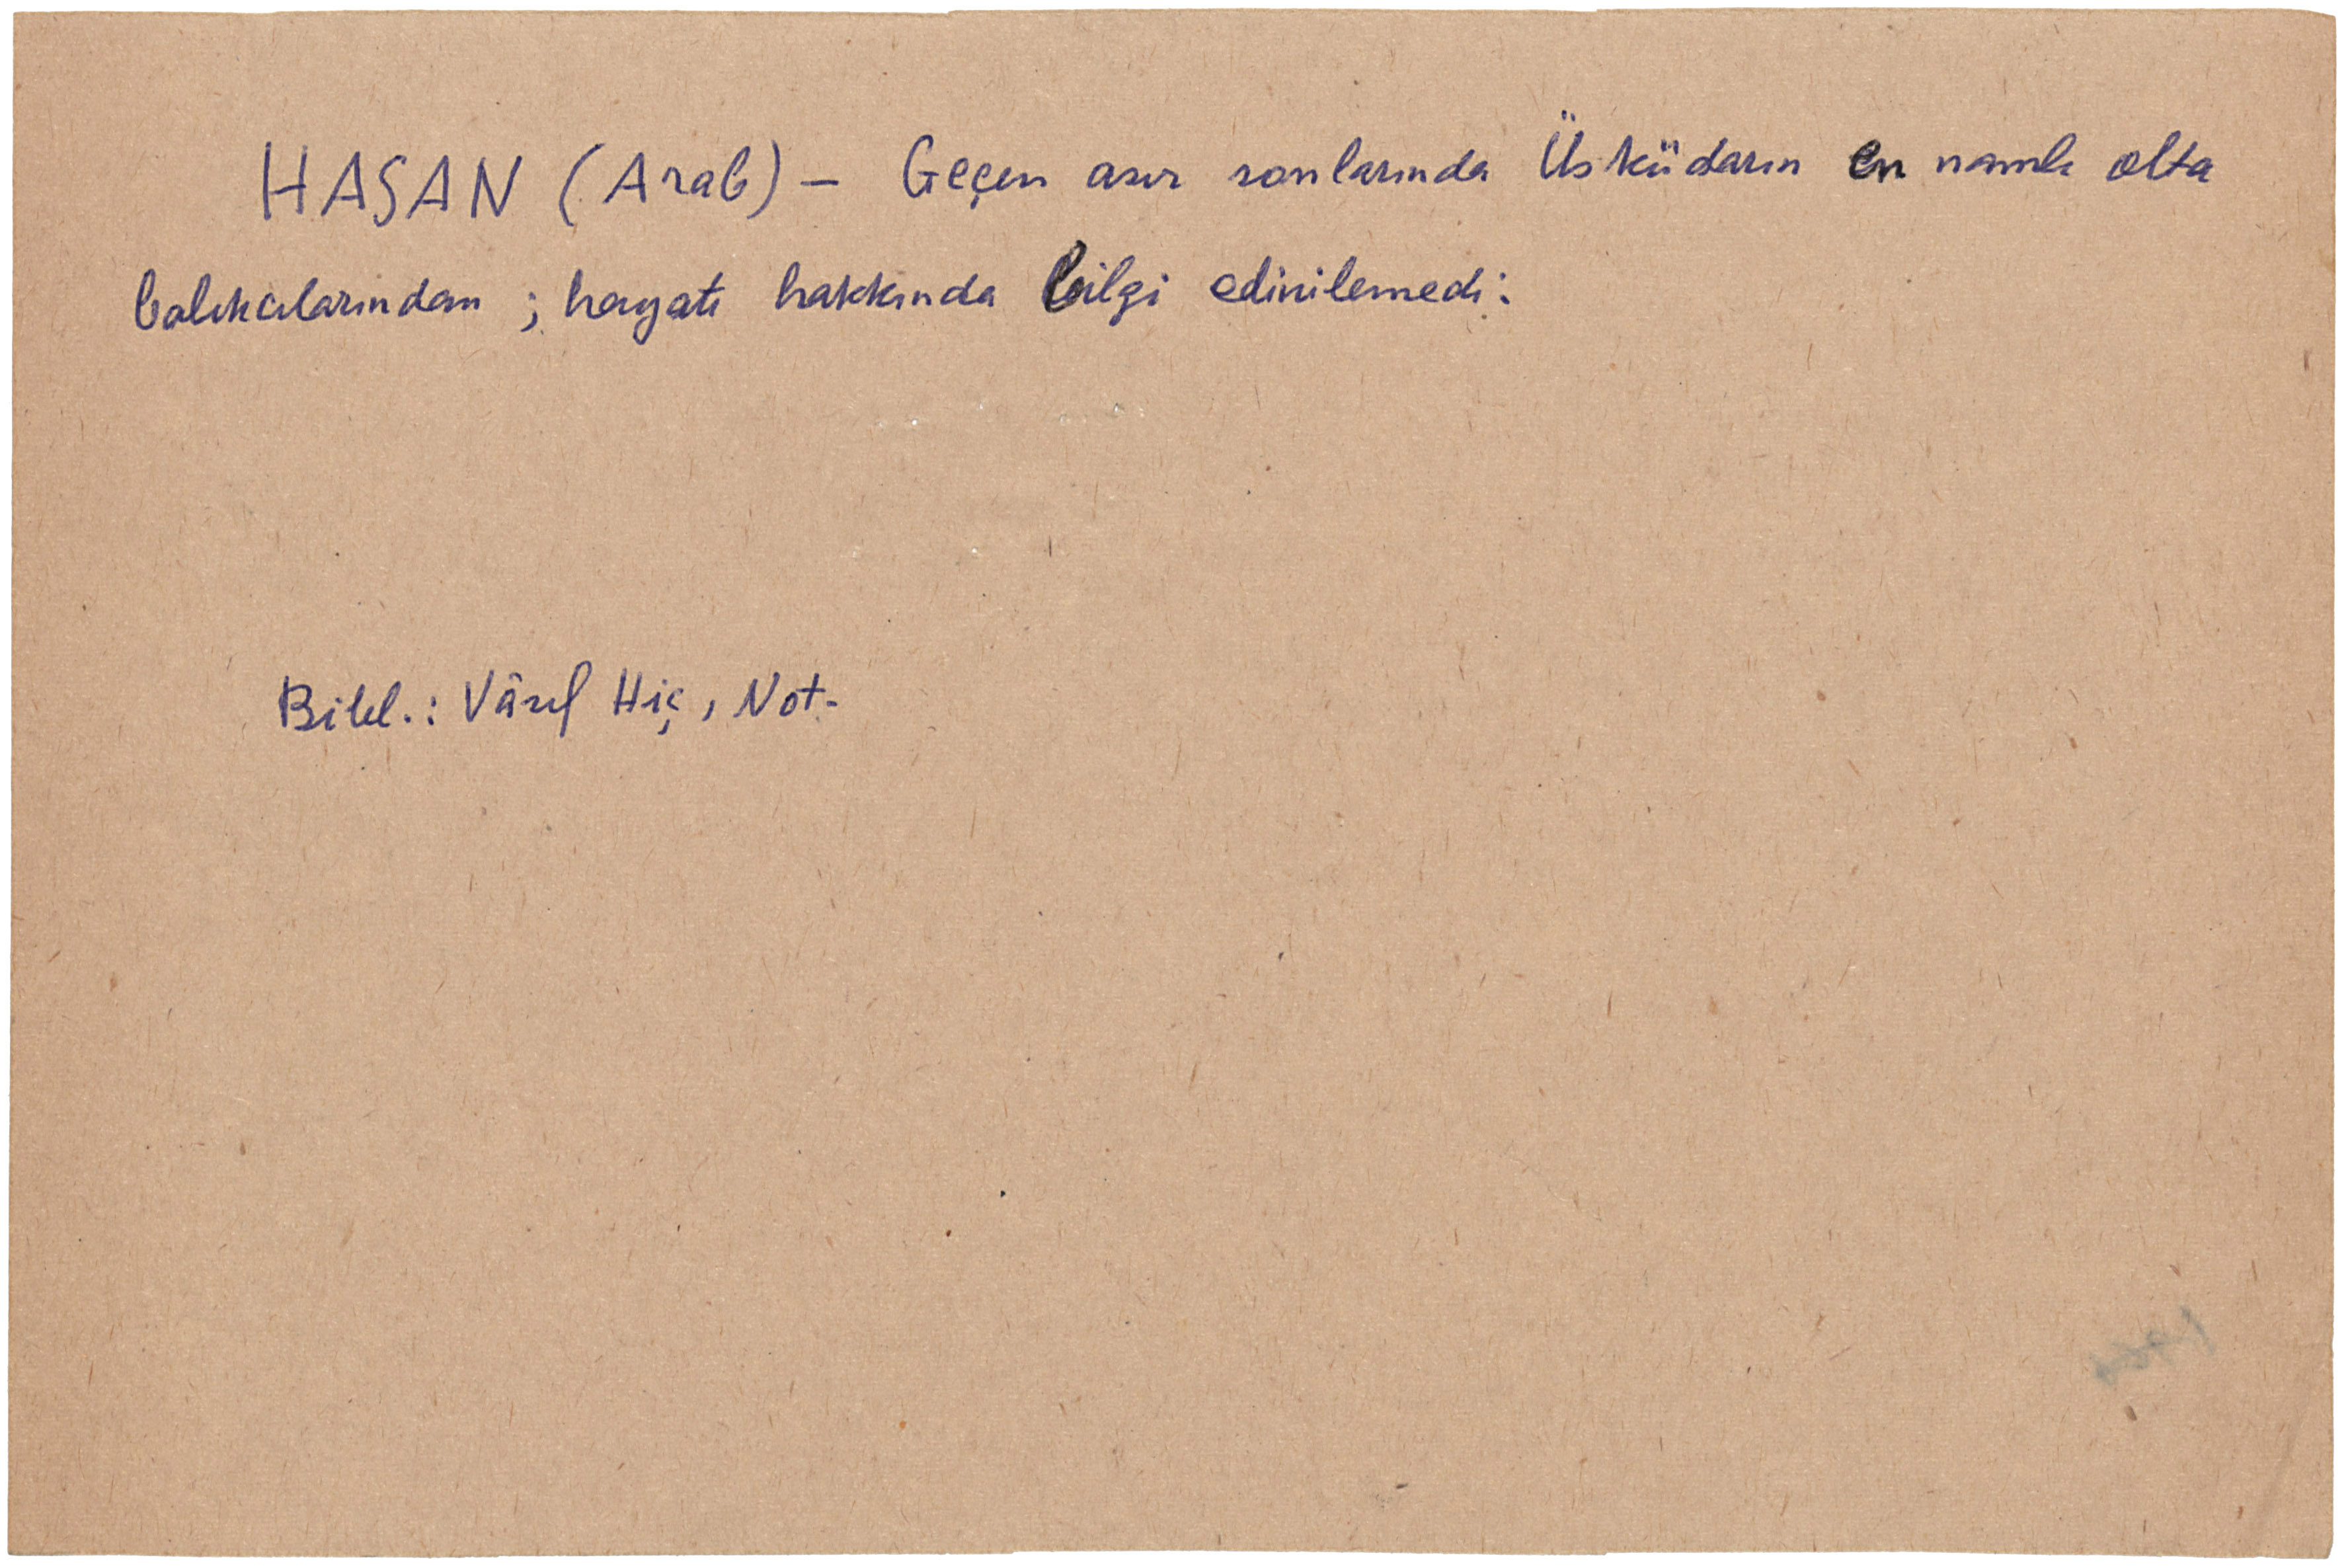 HASAN (Arab) — Geçen asır sonlarında Üsküdarın en namlı olta
balıkcılarından ; hayatı hakkında bilgi edinilemedi:
Bibl.: Vâsıf Hiç, Not.